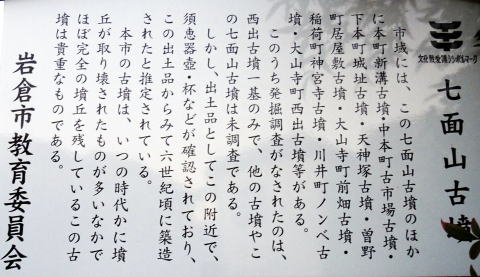 七面山古墳
文化財愛護シンボルマーク
市域には、この七面山古墳のほか
に本町新溝古墳・中本町古市場古墳・
下本町城址古墳・天神塚古墳・曽野
町居屋敷古墳・大山寺町前畑古墳・
稲荷町神宮寺古墳・川井町ノンベ古
墳・大山寺町西出古墳等がある。
このうち発掘調査がなされたのは、
西出古墳一基のみで、他の古墳やこ
の七面山古墳は未調査である。
しかし、出土品としてこの附近で、
須恵器壺・杯などが確認されており、
この出土品からみて六世紀頃に築造
されたと推定されている。
本市の古墳は、いつの時代かに墳
丘が取り壊されたものが多いなかで
ほぼ完全の墳丘を残しているこの古
墳は貴重なものである。
岩倉市教育委員会